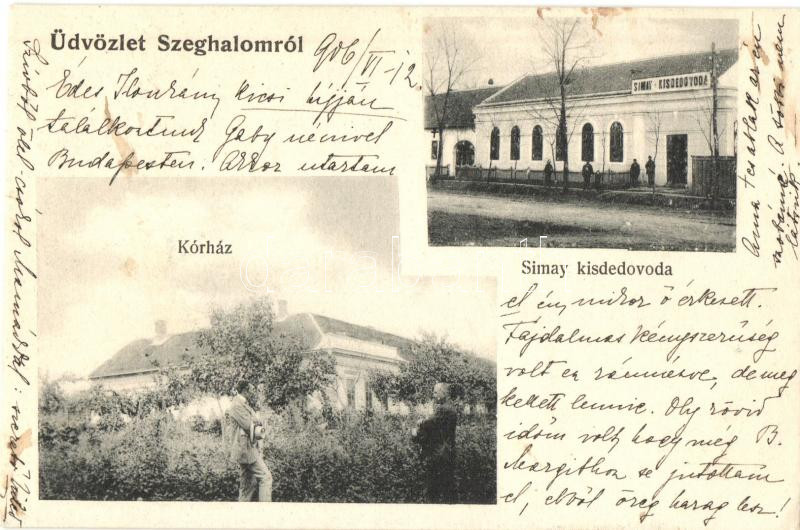 Üdvözlet Szeghalomról 906/VI-12
Édes Ilonkám, kicsi hijján
találkoztunk Gaby nénivel
Budapesten. Akkor utaztam
SIMAY - KISDEDOVODA
Kórház
Simay kisdedovoda
el én, mikor ő érkezett.
Fájdalmas kényszerűség
volt ez rám nézve, de meg
kellett lennie. Oly rövid
időm volt, hogy még B.
Margithoz se jutottam
el, ebből öreg harag lesz!
Szívből ölel csókol Mamáddal: